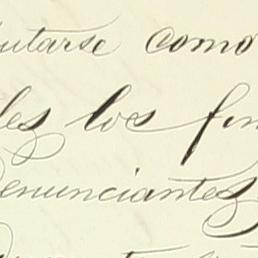 utarse como
les los fin
denunciantes